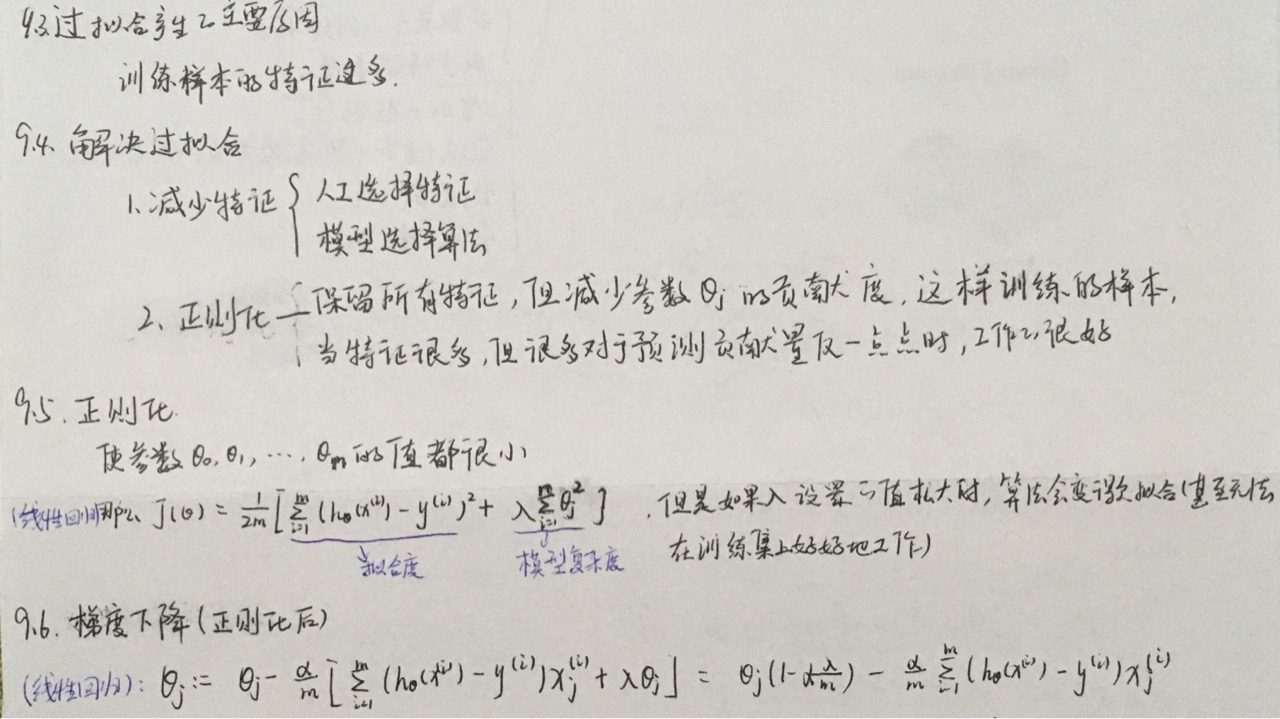 9.3 过拟合产生的主要原因
训练样本的特征过多.
9.4. 解决过拟合
1. 减少特征 { 人工选择特征
模型选择算法
2. 正则化 { 保留所有特征, 但减少参数 θj 的贡献度, 这样训练的样本,
当特征很多, 但很多对于预测贡献量仅一点点时, 工作的很好
9.5. 正则化
使参数 θ₀, θ₁, ⋯, θm 的值都很小
(线性回归)那么 J(θ) = 1/2m [ Σᵢ₌₁ᵐ (hθ(x⁽ⁱ⁾) − y⁽ⁱ⁾)² + λ Σ θj² ] , 但是如果 λ 设置的值太大时, 算法会变得欠拟合(甚至无法
拟合度 模型复杂度 在训练集上好好地工作)
9.6. 梯度下降(正则化后)
(线性回归): θj := θj − α/m [ Σᵢ₌₁ᵐ (hθ(x⁽ⁱ⁾) − y⁽ⁱ⁾) xj⁽ⁱ⁾ + λθj ] = θj(1 − α λ/m) − α/m Σᵢ₌₁ᵐ (hθ(x⁽ⁱ⁾) − y⁽ⁱ⁾) xj⁽ⁱ⁾